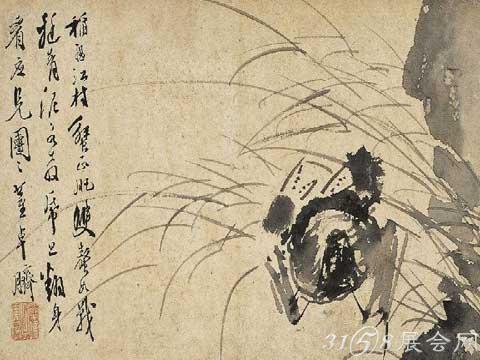 稻熟江村蟹正肥雙螯如戟
挺青泥若教帋上翻身
看应見團〻董卓臍
3158展会网